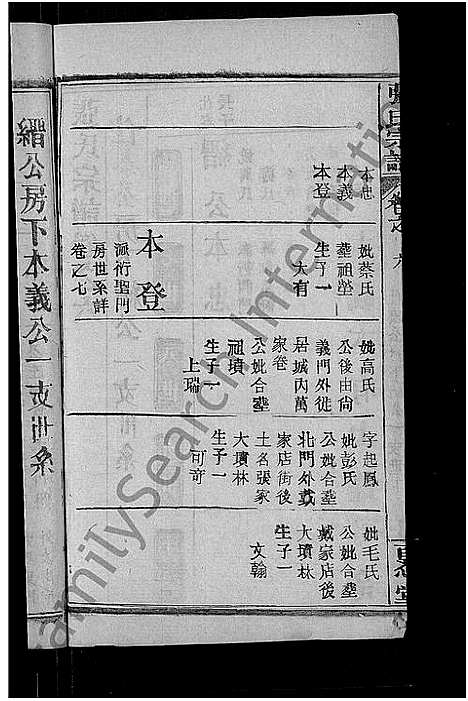 本忠
本義
本登
妣蔡氏
葬祖塋
生子一
大有
本登
派衍聖門
房世系詳
卷之七
妣高氏
公後由尚
義門外徙
居城內萬
家巷
公妣合塟
祖墳
生子一
上瑞
字起鳳
妣彭氏
公妣合塟
北門外戴
家店街後
土名張家
大墳林
生子一
可奇
妣毛氏
公妣合塟
戴家店後
大墳林
生子一
文翰
縉公房下本義公一支世系
FamilySearch International